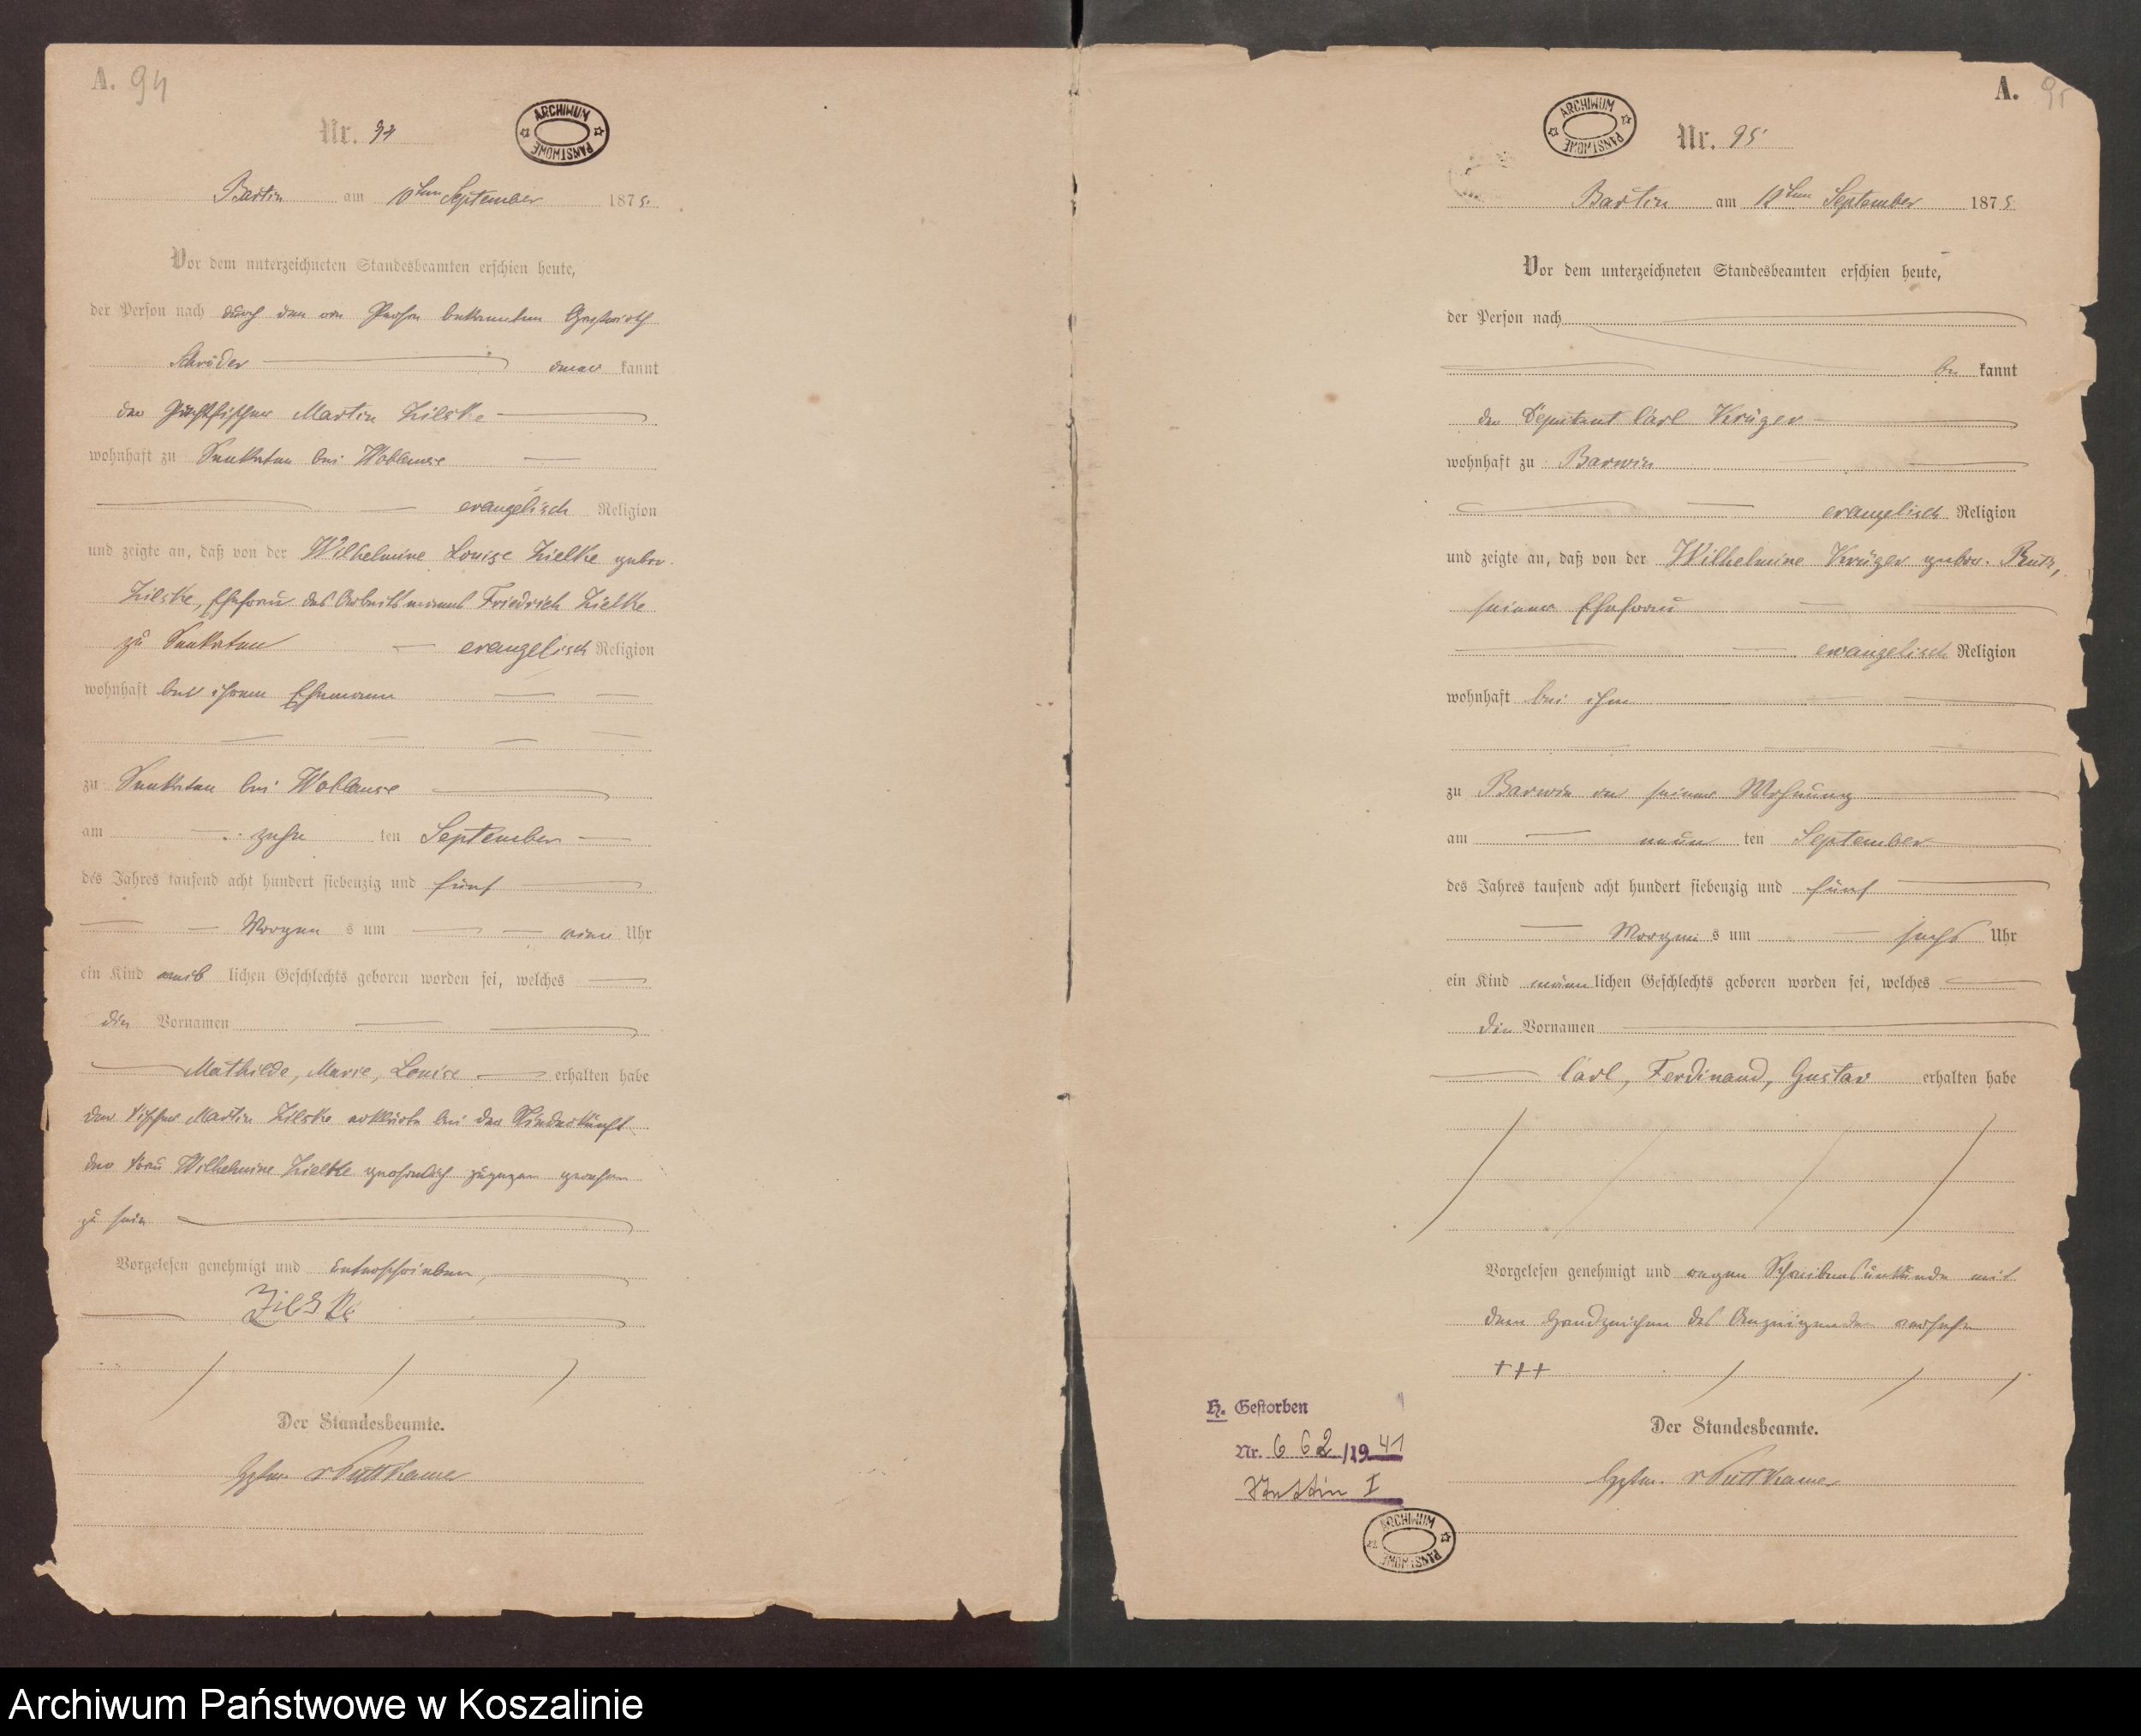 A. 94
Nr. 94
ARCHIWUM PAŃSTWOWE
Bartin am 10ten September 1875.
Vor dem unterzeichneten Standesbeamten erschien heute,
der Person nach durch den von Person bekannten Gastwirth
Schröder aner kannt
der Pachtfischer Martin Zielske
wohnhaft zu bei Woblanse
evangelisch Religion
und zeigte an, daß von der Wilhelmine Louise Zielke gebor.
Zielske, Ehefrau des Arbeitsmanns Friedrich Zielke
zu evangelisch Religion
wohnhaft bei ihrem Ehemann
zu bei Woblanse
am zehn ten September
des Jahres tausend acht hundert siebenzig und fünf
Morgen s um Uhr
ein Kind weib lichen Geschlechts geboren worden sei, welches
die Vornamen
Mathilde, Marie, Louise erhalten habe
der Fischer Martin Zielske erklärte bei der Niederkunft
der Frau Wilhelmine Zielke zugegen gewesen
zu sein
Vorgelesen genehmigt und unterschrieben,
Zielske
Der Standesbeamte.
v Puttkamer
A. 95
ARCHIWUM PAŃSTWOWE
Nr. 95
Bartin am 12ten September 1875
Vor dem unterzeichneten Standesbeamten erschien heute,
der Person nach
be kannt
der Deputant Carl Krüger
wohnhaft zu Barwin
evangelisch Religion
und zeigte an, daß von der Wilhelmine Krüger gebor.
seiner Ehefrau
evangelisch Religion
wohnhaft bei ihm
zu Barwin in seiner Wohnung
am neun ten September
des Jahres tausend acht hundert siebenzig und fünf
Morgen s um sechs Uhr
ein Kind männ lichen Geschlechts geboren worden sei, welches
die Vornamen
Carl, Ferdinand, Gustav erhalten habe
Vorgelesen genehmigt und wegen Schreibensunkunde mit
dem Handzeichen des Anzeigenden versehen
+++
Der Standesbeamte.
v Puttkamer
H. Gestorben
Nr. 662/1941
Stettin I
ARCHIWUM PAŃSTWOWE
Archiwum Państwowe w Koszalinie